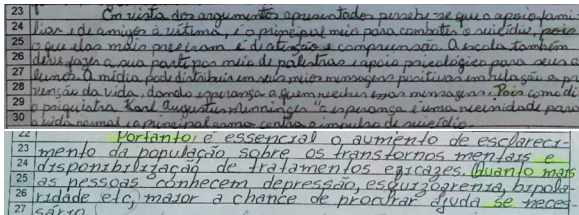 23 Em vista dos argumentos apresentados percebe se que o apoio fami
24 liar, e de amigos à vítima, é o principal meio para combater o suicídio, pois
25 o que elas mais precisam é de atenção e compreensão. A escola também
26 deve fazer a sua parte por meio de palestras e apoio psicológico para seus a
27 lunos. A mídia pode distribuir em seus meios mensagens positivas em relação a pre
28 venção da vida, dando esperança a quem receber essa mensagem. Pois como di
29 o psiquiatra Karl Augustus Menninger "a esperança é uma necessidade para
30 a vida normal e a principal arma contra o impulso do suicídio.
22 Portanto, é essencial o aumento de esclareci-
23 mento da população sobre os transtornos mentais e
24 disponibilização de tratamentos eficazes. Quanto mais
25 as pessoas conhecem, depressão, esquizofrenia, bipola-
26 ridade etc, maior a chance de procurar ajuda se neces-
27 sário